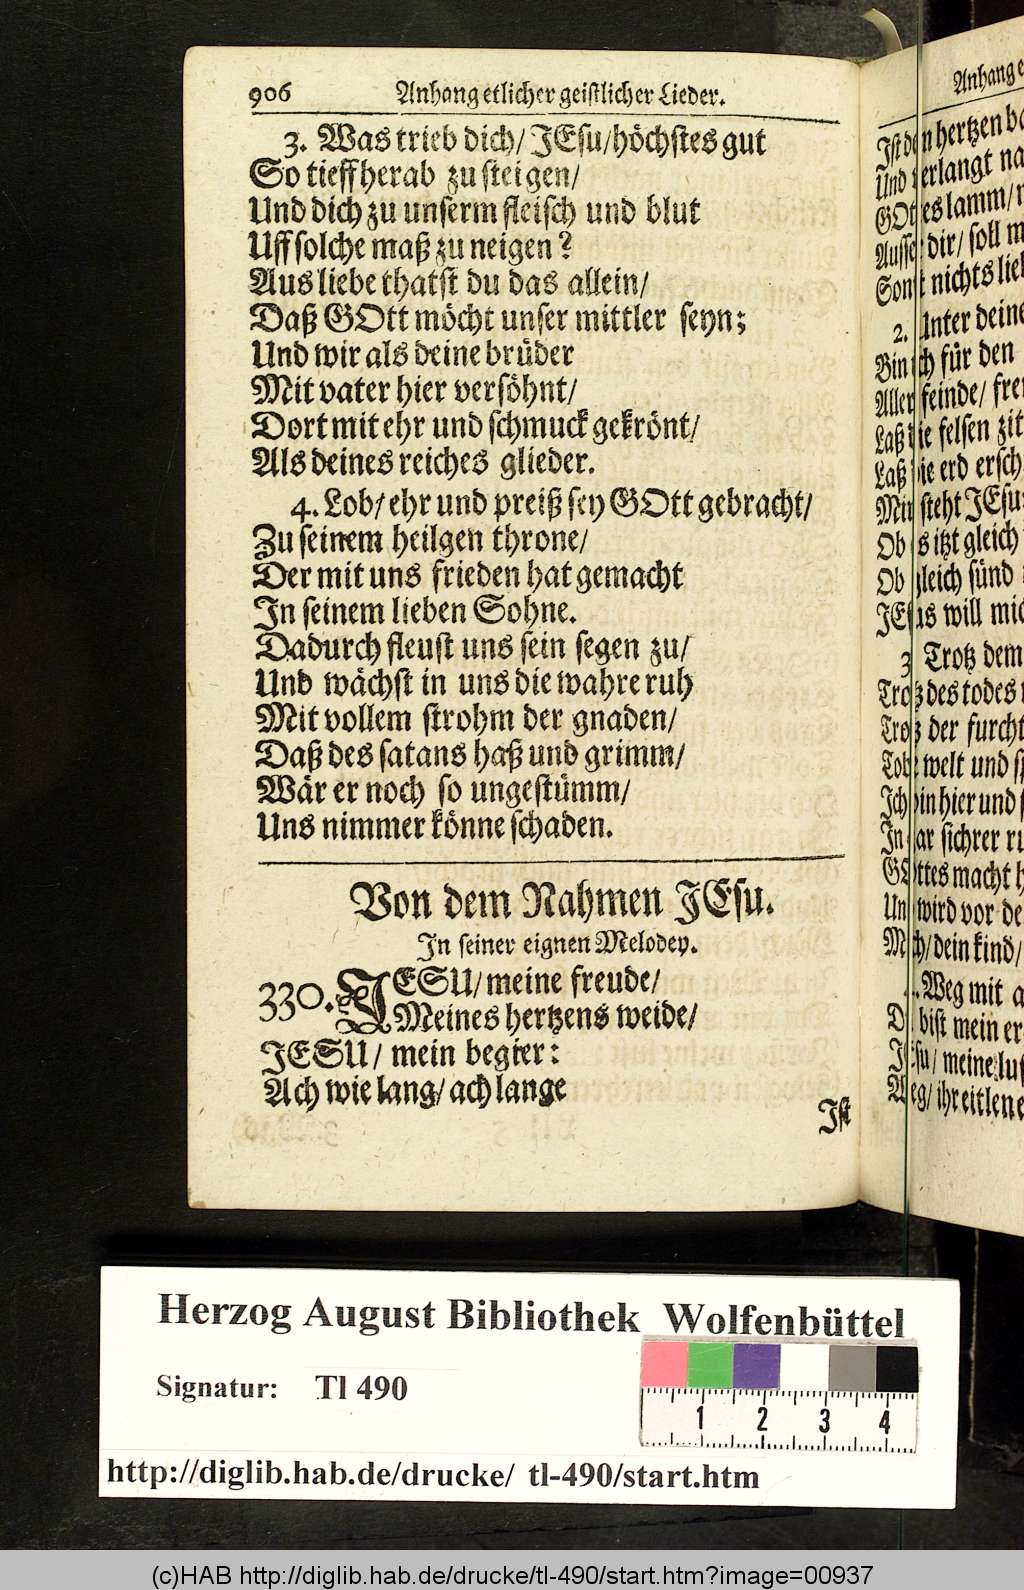 906 Anhang etlicher geistlicher Lieder.
3. Was trieb dich/ JEsu/ höchstes gut
So tieff herab zu steigen/
Und dich zu unserm fleisch und blut
Uff solche maß zu neigen?
Aus liebe thatst du das allein/
Daß GOtt möcht unser mittler seyn;
Und wir als deine brüder
Mit vater hier versöhnt/
Dort mit ehr und schmuck gekrönt/
Als deines reiches glieder.
4. Lob/ ehr und preiß sey GOtt gebracht/
Zu seinem heilgen throne/
Der mit uns frieden hat gemacht
In seinem lieben Sohne.
Dadurch fleust uns sein segen zu/
Und wächst in uns die wahre ruh
Mit vollem strohm der gnaden/
Daß des satans haß und grimm/
Wär er noch so ungestümm/
Uns nimmer könne schaden.
Von dem Nahmen JEsu.
In seiner eignen Melodey.
330. JESU/ meine freude/
Meines hertzens weide/
JESU/ mein begier:
Ach wie lang/ ach lange
Ist
Anhang
hertzen
verlangt
lamm/
dir/ soll
nichts
2. Unter
für den
feinde/
felsen
Laß die erd
steht JEsu
itzt gleich
Ob gleich sünd
JEsus will
3 Trotz dem
Trotz des todes
Trotz der furcht
welt und
hier und
In gar sichrer
GOttes macht
wird vor
dein kind/
Weg mit
bist mein
meine
Weg/ ihr eitlen
Herzog August Bibliothek Wolfenbüttel
Signatur: Tl 490
1 2 3 4
http://diglib.hab.de/drucke/ tl-490/start.htm
(c)HAB http://diglib.hab.de/drucke/tl-490/start.htm?image=00937